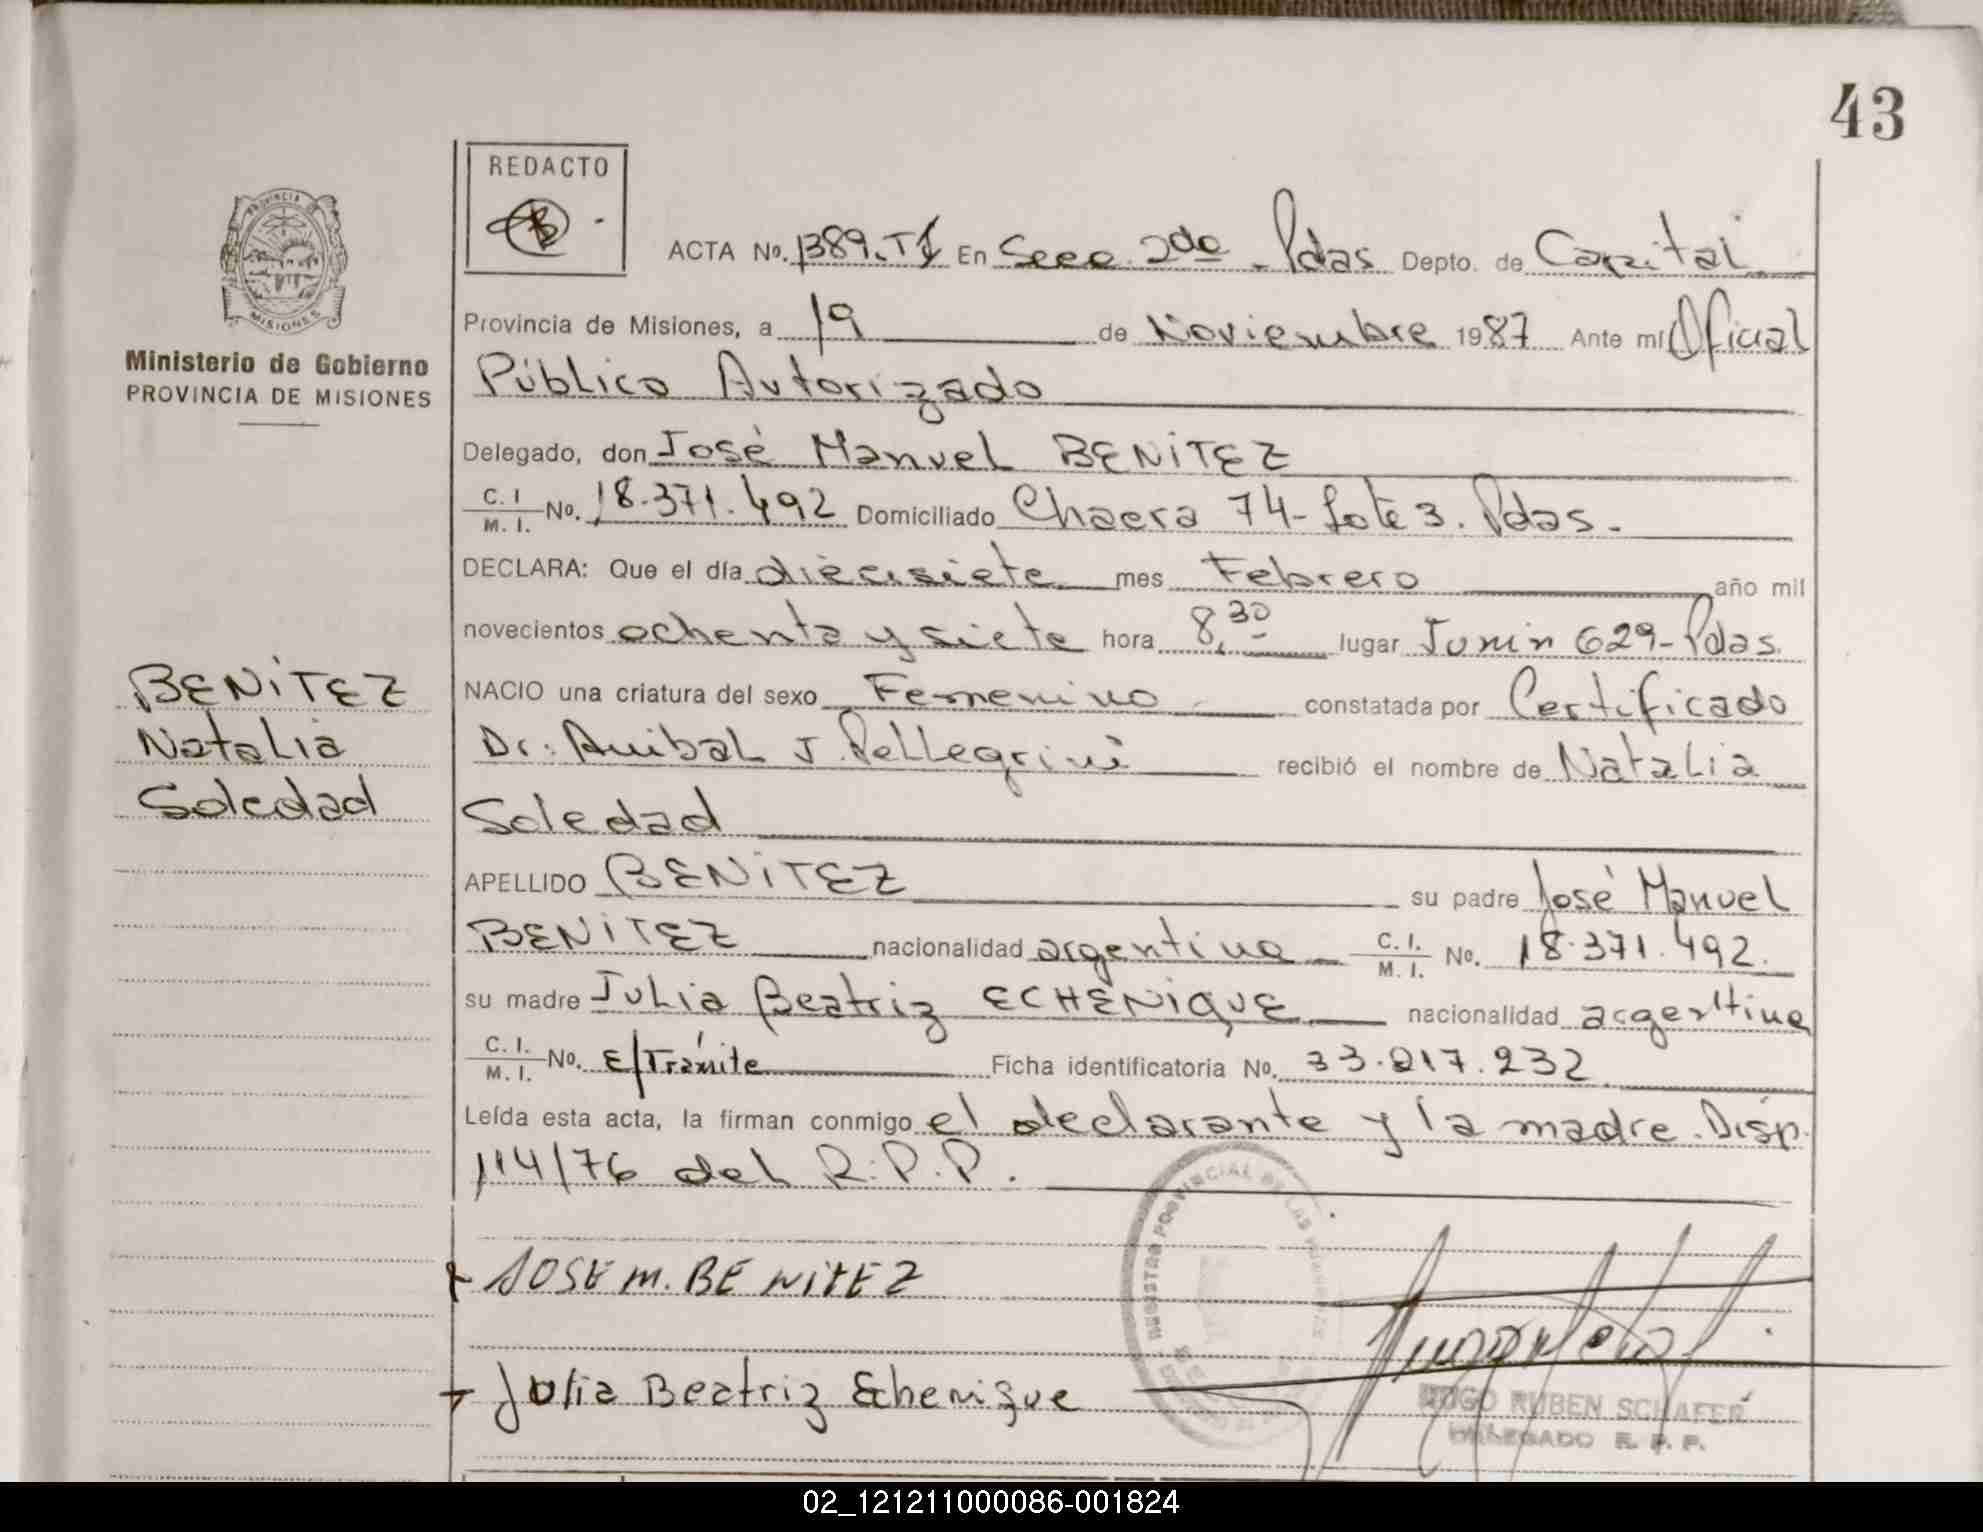 43
REDACTO
PROVINCIA DE
MISIONES
Ministerio de Gobierno
PROVINCIA DE MISIONES
ACTA No. 1389.T1 En Secc. 2da - Pdas Depto. de Capital
Provincia de Misiones, a 19 de Noviembre 1987 Ante mí Oficial
Público Autorizado
Delegado, don José Manuel BENITEZ
C. I / M. I. No. 18.371.492 Domiciliado Chacra 74- Lote 3. Pdas.
DECLARA: Que el día diecisiete mes Febrero año mil
novecientos ochenta y siete hora 8,30 lugar Junin 629- Pdas.
NACIO una criatura del sexo Femenino constatada por Certificado
Dr. Anibal J. Pellegrini recibió el nombre de Natalia
Soledad
BENITEZ
Natalia
Soledad
APELLIDO BENITEZ su padre José Manuel
BENITEZ nacionalidad argentina C. I. / M. I. No. 18.371.492.
su madre Julia Beatriz ECHENIQUE nacionalidad argentina
C. I. / M. I. No. E/Trámite Ficha identificatoria No. 33.217.232
Leída esta acta, la firman conmigo el declarante y la madre. Disp.
114/76 del R.P.P.
JOSE M. BENITEZ
Julia Beatriz Echenique
REGISTRO PROVINCIAL DE LAS PERSONAS
HUGO RUBEN SCHAFER
DELEGADO R. P. P.
02_121211000086-001824